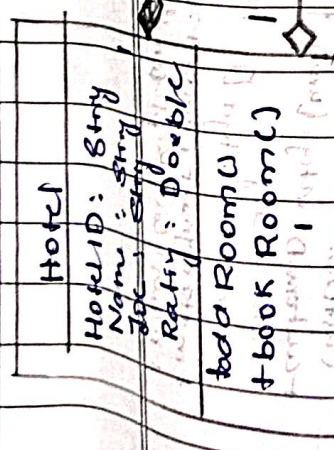 Hotel
HotelID: String
Name: String
Loc: String
Rating: Double
+add Room()
+book Room()
1
1